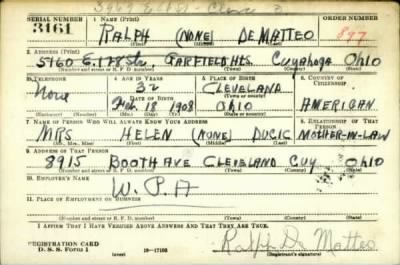 SERIAL NUMBER 1. NAME (Print) ORDER NUMBER
3161 RALPH (NONE) DE MATTEO 897
(First) (Middle) (Last)
2. ADDRESS (Print)
5160 E. 128 St. GARFIELD HTS. Cuyahoga Ohio
(Number and street or R. F. D. number) (Town) (County) (State)
3. TELEPHONE 4. AGE IN YEARS 5. PLACE OF BIRTH 6. COUNTRY OF CITIZENSHIP
None 32 CLEVELAND
DATE OF BIRTH (Town or county)
Feb. 18 1908 Ohio AMERICAN
(Exchange) (Number) (Mo.) (Day) (Yr.) (State or country)
7. NAME OF PERSON WHO WILL ALWAYS KNOW YOUR ADDRESS 8. RELATIONSHIP OF THAT PERSON
MRS HELEN (NONE) DUCIC MOTHER-IN-LAW
(Mr., Mrs., Miss) (First) (Middle) (Last)
9. ADDRESS OF THAT PERSON
8915 BOOTH AVE CLEVELAND CUY. OHIO
(Number and street or R. F. D. number) (Town) (County) (State)
10. EMPLOYER'S NAME
W. P. A
11. PLACE OF EMPLOYMENT OR BUSINESS
(Number and street or R. F. D. number) (Town) (County) (State)
I AFFIRM THAT I HAVE VERIFIED ABOVE ANSWERS AND THAT THEY ARE TRUE.
REGISTRATION CARD
D. S. S. Form 1 (over) 16—17105 Ralph De Matteo
(Registrant's signature)